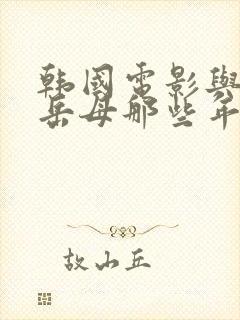 韩國電影與
岳母那些年
故山丘